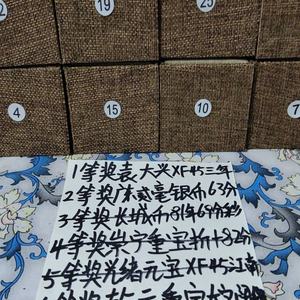 19
4
15
10
7
1等奖袁大头XF45三年
2等奖广东贰毫银币63分
3等奖长城币81年69分
4等奖崇宁重宝折十82分
5等奖光绪元宝XF45江南